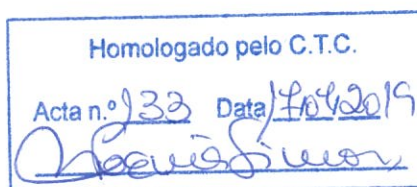 Homologado pelo C.T.C.
Acta n.º 133 Data 17/04/2019